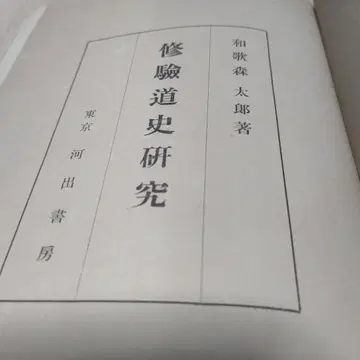 和歌森太郎著
修驗道史硏究
東京 河出書房